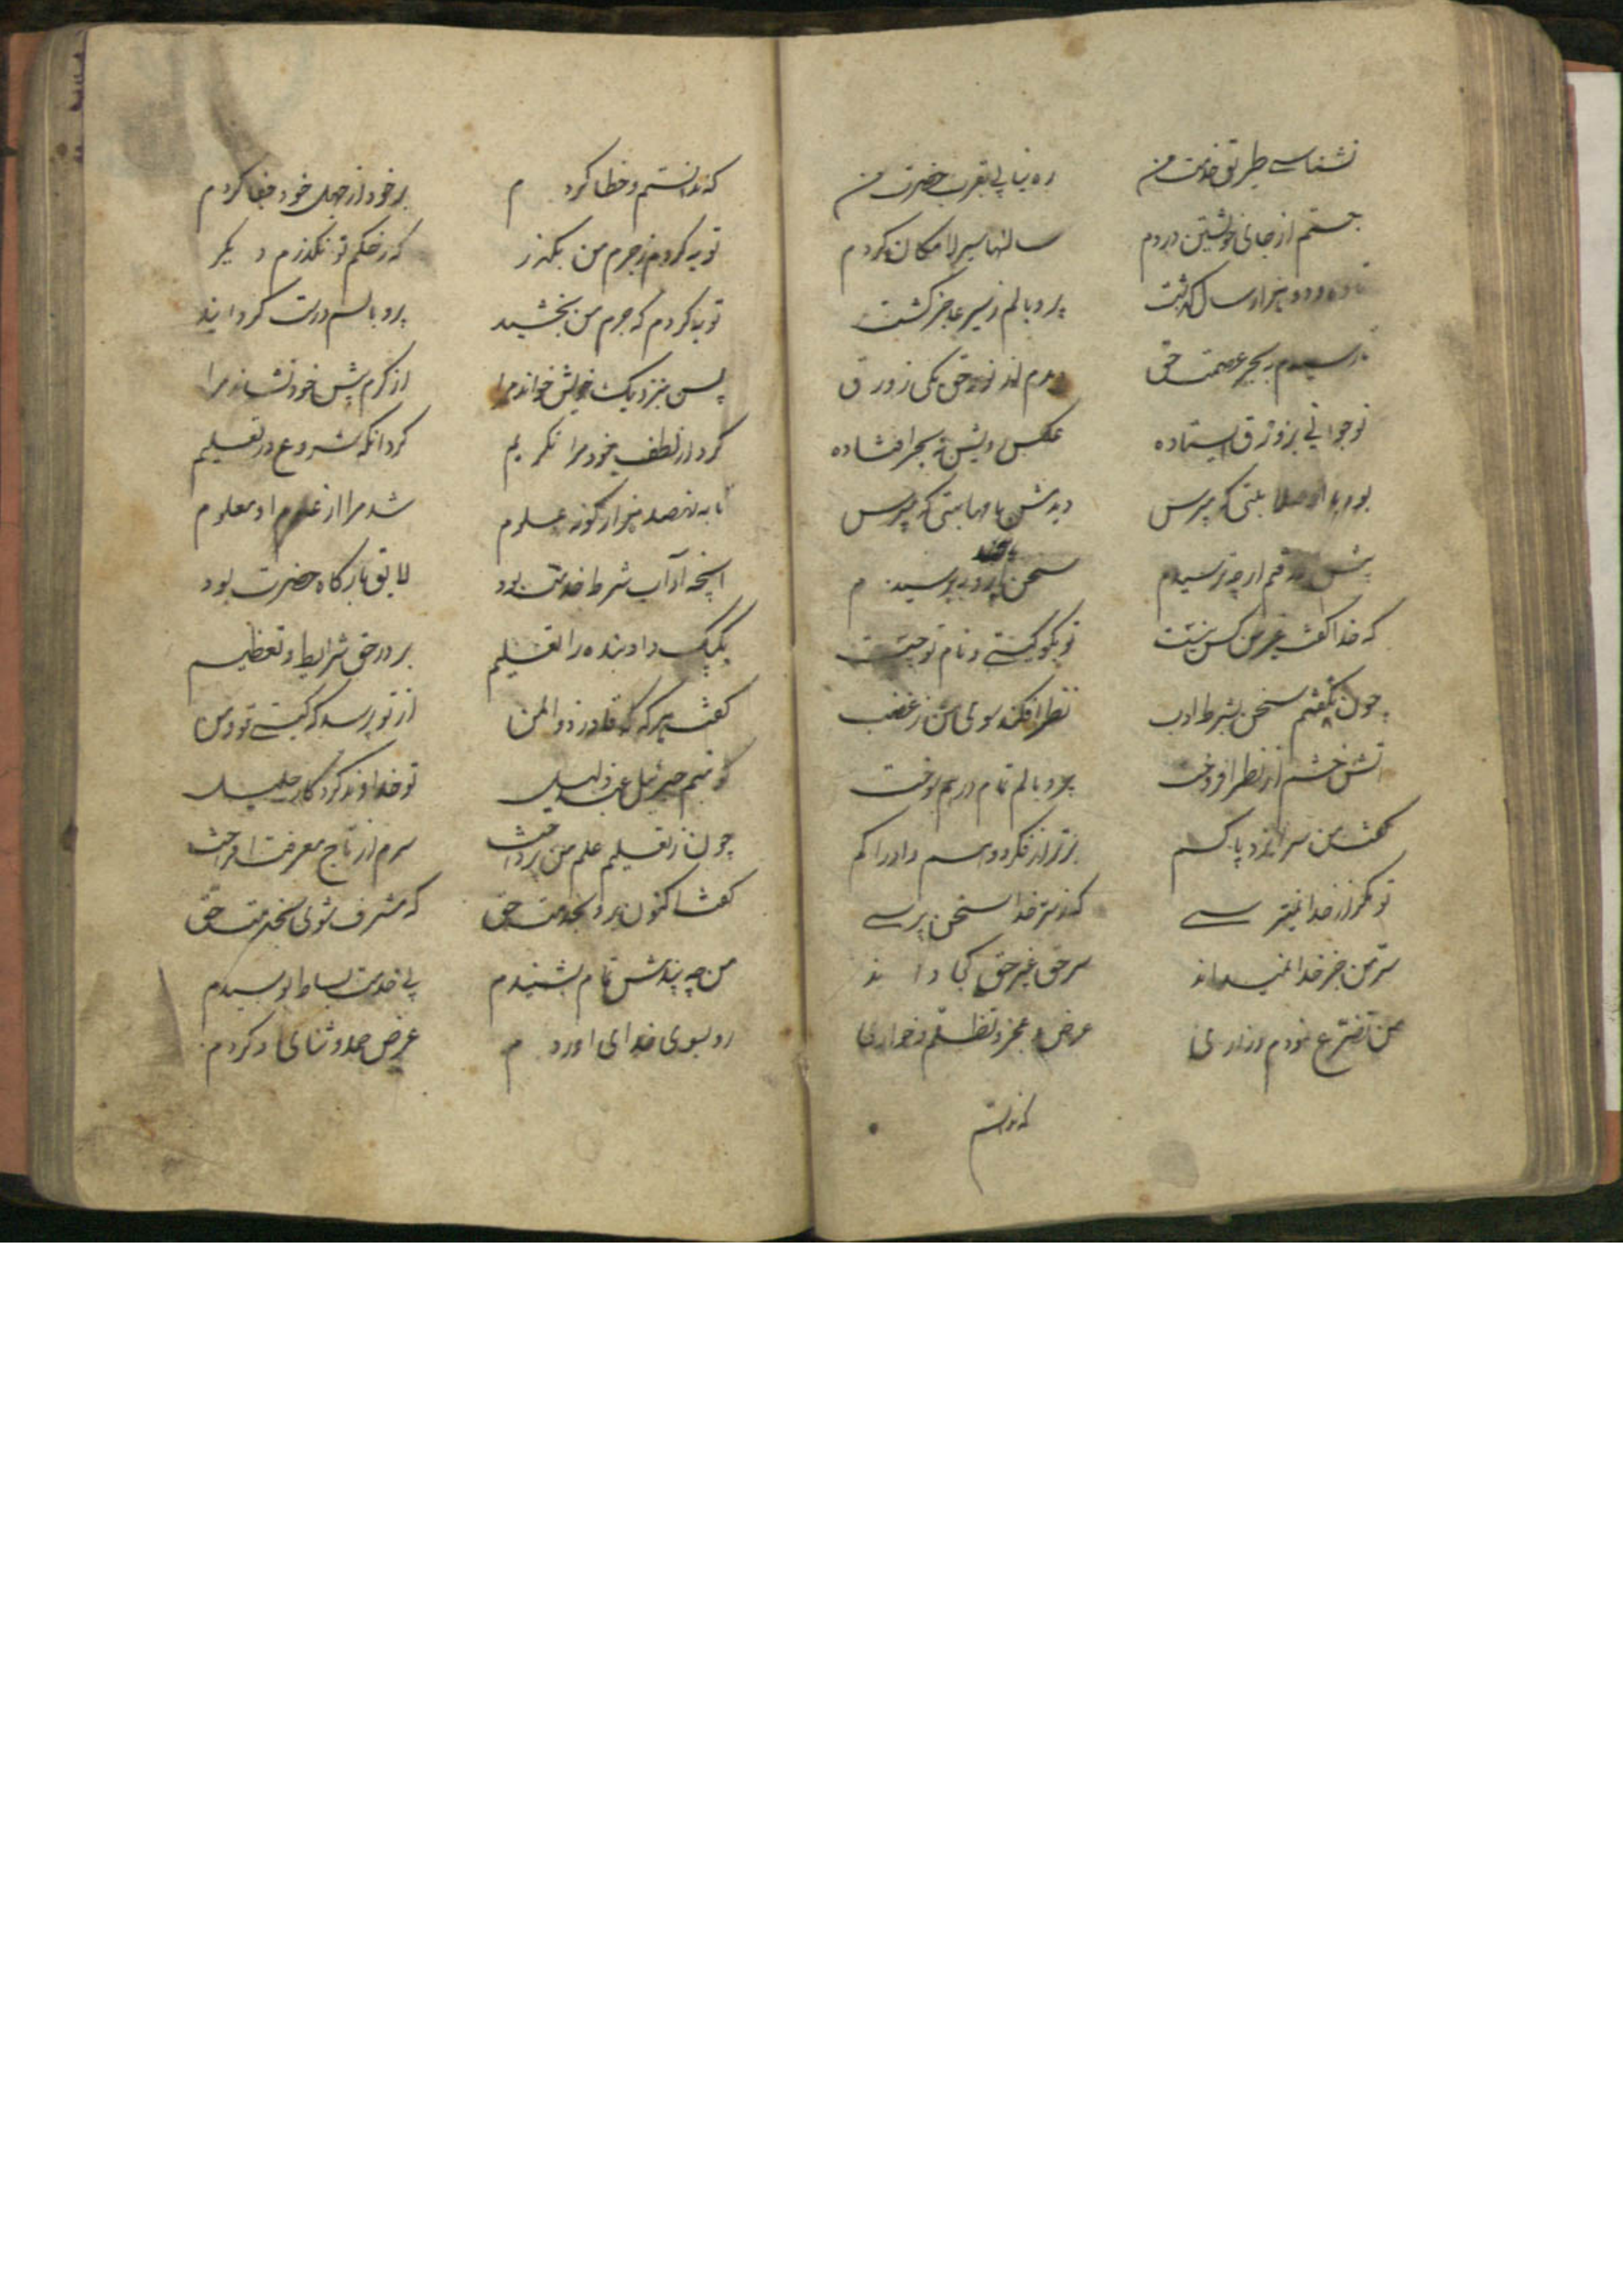 نشناسی طریق خدمت من ره نیابی بقرب حضرت من
جستم از جای خویشتن دردم سالها سیر لامکان کردم
دو هزار سال گذشت پر و بالم ز سیر عاجز گشت
رسیدم بحر عصمت حق دیدم از نور حق یکی زورق
نوجوانی بزورق استاده عکس رویش به بحر افتاده
بود با صلابتی که مپرس دیدمش با مهابتی که مپرس
پیش رفتم ار چه ترسیدم سخن پرسیدم
که خدا گفت غیر من کس نیست تو بگو کیستی و نام تو چیست
چون نگفتم سخن بشرط ادب نظر افکند سوی من ز غضب
آتش خشم از نظر افروخت پر و بالم تمام درهم سوخت
گفت من سر ایزد پاکم برتر از فکر و وهم و ادراکم
تو مگر از خدا نمیترسی که ز سر خدا سخن پرسی
سر من جز خدا نمیداند سر حق غیر حق کجا داند
من تضرع نمودم و زاری عرض و عجز و تظلم و خواری
که ندانستم
که ندانستم و خطا کردم بر خود از جهل خود جفا کردم
توبه کردم ز جرم من بگذر که ز حکم تو نگذرم دیگر
توبه کردم که جرم من بخشید پر و بالم درست گردانید
پس بنزدیک خویش خواند مرا از کرم پیش خود نشاند مرا
کرد از لطف خود مرا تکریم کرد آنگه شروع در تعلیم
تا به نهصد هزار گونه علوم شد مرا از علوم او معلوم
آنچه آداب شرط خدمت بود لایق بارگاه حضرت بود
یک بیک داد بنده را تعلیم بر در حق شرایط و تعظیم
گفت هر گه که قادر ذوالمن از تو پرسد که کیستی تو و من
گو منم جبرئیل عبد ذلیل تو خداوند کردگار جلیل
چون ز تعلیم علم من پرداخت سرم از تاج معرفت افراخت
گفت اکنون برو بخدمت حق که مشرف شوی بخدمت حق
من چه پندش تمام بشنیدم پی خدمت بساط بوسیدم
رو بسوی خدای آوردم عرض حمد و ثنای او کردم